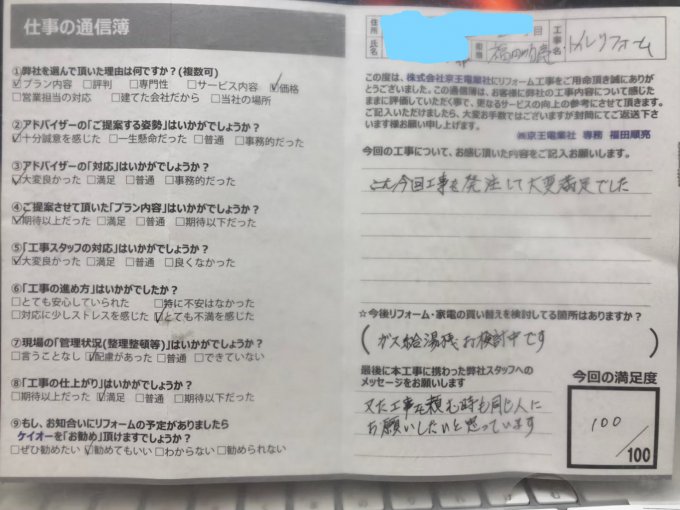 仕事の通信簿
①弊社を選んで頂いた理由は何ですか?(複数可)
☑プラン内容 □評判 □専門性 □サービス内容 ☑価格
□営業担当の対応 □建てた会社だから □当社の場所
②アドバイザーの「ご提案する姿勢」はいかがでしょうか?
☑十分誠意を感じた □一生懸命だった □普通 □事務的だった
③アドバイザーの「対応」はいかがでしょうか?
☑大変良かった □満足 □普通 □事務的だった
④ご提案させて頂いた「プラン内容」はいかがでしょうか?
☑期待以上だった □満足 □普通 □期待以下だった
⑤「工事スタッフの対応」はいかがでしょうか?
☑大変良かった □満足 □普通 □良くなかった
⑥「工事の進め方」はいかがでしたか?
□とても安心していられた □特に不安はなかった
□対応に少しストレスを感じた ☑とても不満を感じた
⑦現場の「管理状況(整理整頓等)」はいかがでしょうか?
□言うことなし ☑配慮があった □普通 □できていない
⑧「工事の仕上がり」はいかがでしょうか?
□期待以上だった ☑満足 □普通 □期待以下だった
⑨もし、お知合いにリフォームの予定がありましたら
ケイオーを「お勧め」頂けますでしょうか?
□ぜひ勧めたい ☑勧めてもいい □わからない □勧められない
住所
氏名
担当
工事名
トイレリフォーム
この度は、株式会社京王電業社にリフォーム工事をご用命頂き誠にありが
とうございました。この通信簿は、お客様に弊社の工事内容について感じた
ままに評価していただく事で、更なるサービスの向上の参考にさせて頂きます。
ご記入いただけましたら、大変お手数ではございますが封筒にてご返送下さ
います様お願い申し上げます。
㈱京王電業社 専務 福田順亮
今回の工事について、お感じ頂いた内容をご記入お願いします。
今回工事を発注して大変満足でした
☆今後リフォーム・家電の買い替えを検討してる箇所はありますか?
(ガス給湯機お検討中です)
最後に本工事に携わった弊社スタッフへの
メッセージをお願いします
又た工事を頼む時も同じ人に
お願いしたいと思っています
今回の満足度
100/100